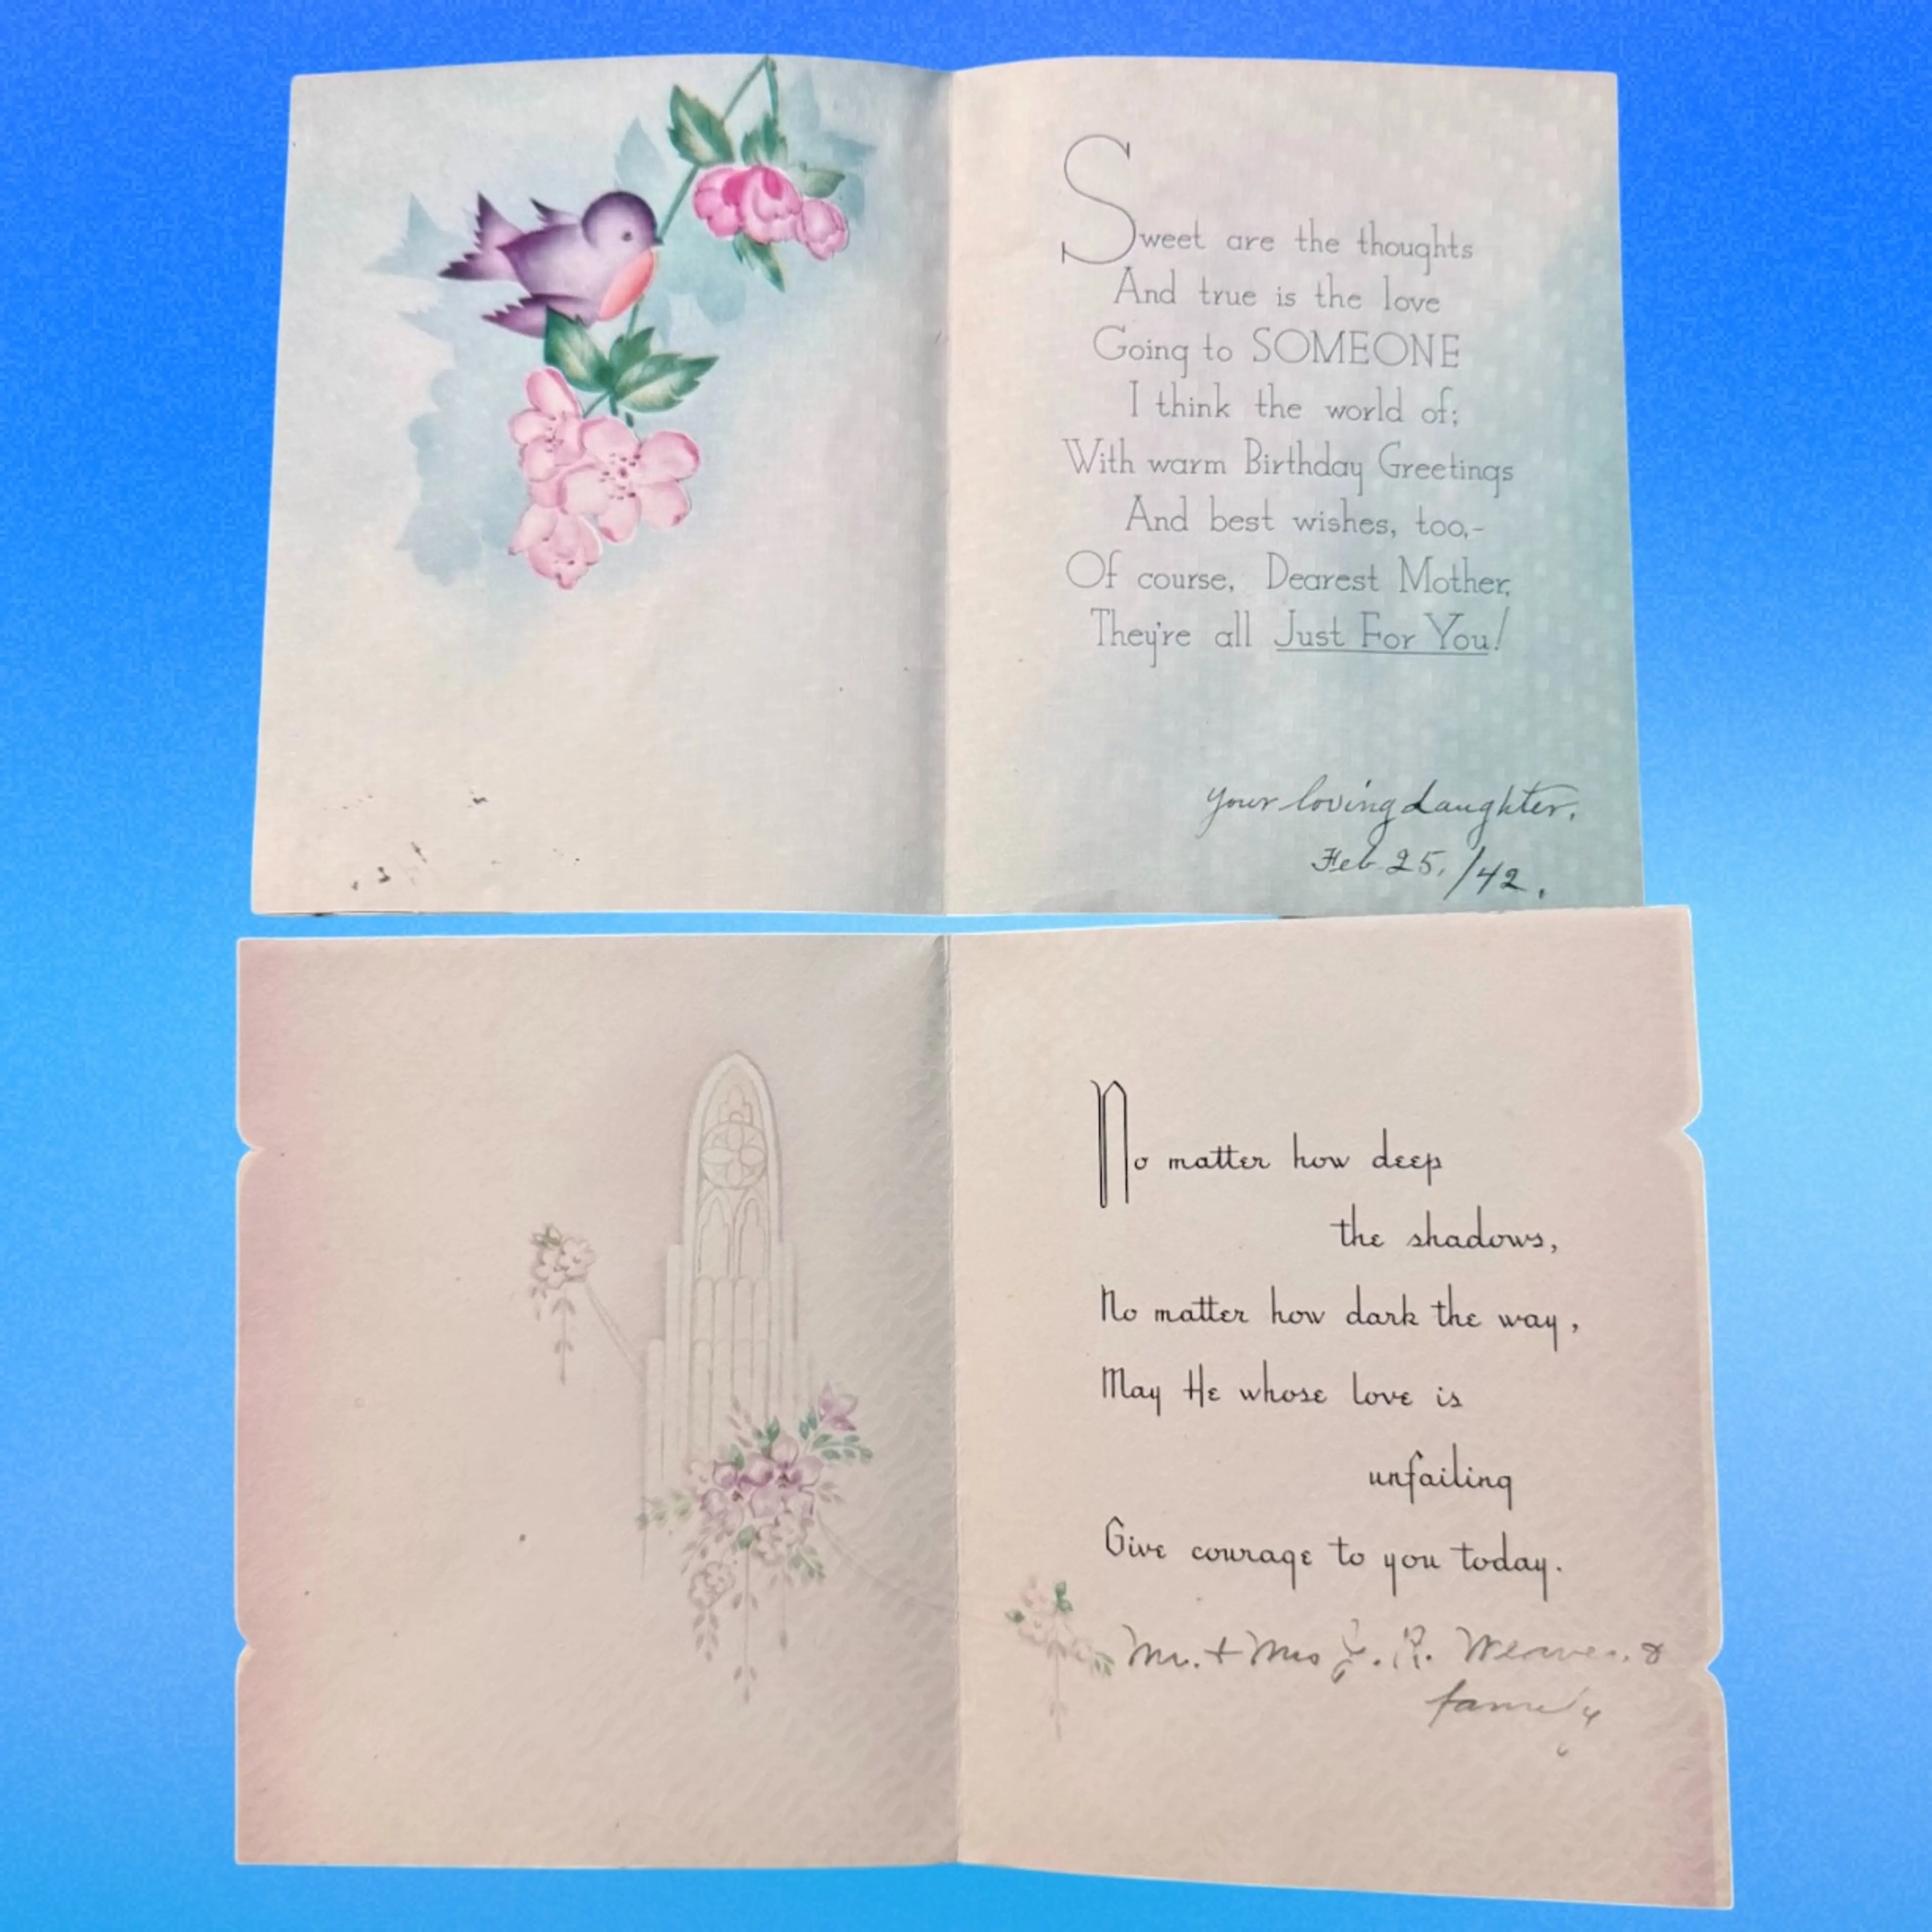 Sweet are the thoughts
And true is the love
Going to SOMEONE
I think the world of;
With warm Birthday Greetings
And best wishes, too,-
Of course, Dearest Mother,
They're all Just For You!
your loving daughter.
Feb 25, /42.
No matter how deep
the shadows,
No matter how dark the way,
May He whose love is
unfailing
Give courage to you today.
Mr. + Mrs R. Weaver. &
family